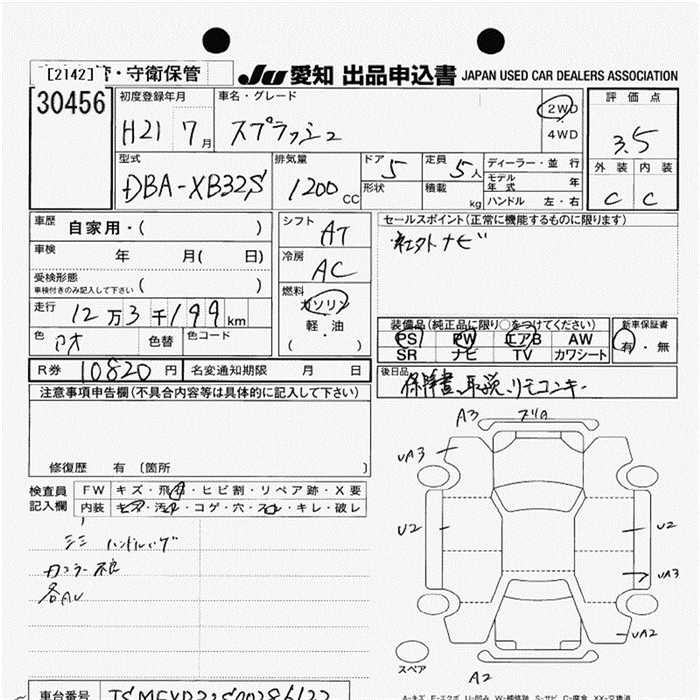 [2142] 管・守衛保管
JU 愛知 出品申込書 JAPAN USED CAR DEALERS ASSOCIATION
30456
初度登録年月 H21 7月
車名・グレード スプラッシュ
2WD
4WD
評価点 3.5
外装 内装
C C
型式 DBA-XB32S
排気量 1200 CC
ドア 5
形状
定員 5人
積載 kg
ディーラー・並行
モデル年式 年
ハンドル 左・右
車歴 自家用・( )
車検 年 月( 日)
受検形態
車検付きのみ記入して下さい ( )
走行 12万3千199km
色 アオ 色替 色コード
シフト AT
冷房 AC
燃料
ガソリン
軽・油
( ・ )
セールスポイント(正常に機能するものに限ります)
社外ナビ
装備品(純正品に限り○をつけてください)
PS PW エアB AW
SR ナビ TV カワシート
新車保証書
有・無
R券 10820円 名変通知期限 月 日
後日品 保障書、取説、リモコンキー
注意事項申告欄(不具合内容等は具体的に記入して下さい)
修復歴 有 (箇所 )
検査員記入欄
FW キズ・飛石・ヒビ割・リペア跡・X要
内装 キズ・汚れ・コゲ・穴・スレ・キレ・破レ
シミ ハンドルハゲ
カウラー不良
各AU
A3
UA3
U2
U2
UA3
UA2
A2
スペア
車台番号
A=キズ E=エクボ U=凹み W=補修跡 S=サビ C=腐食 XX=交換済